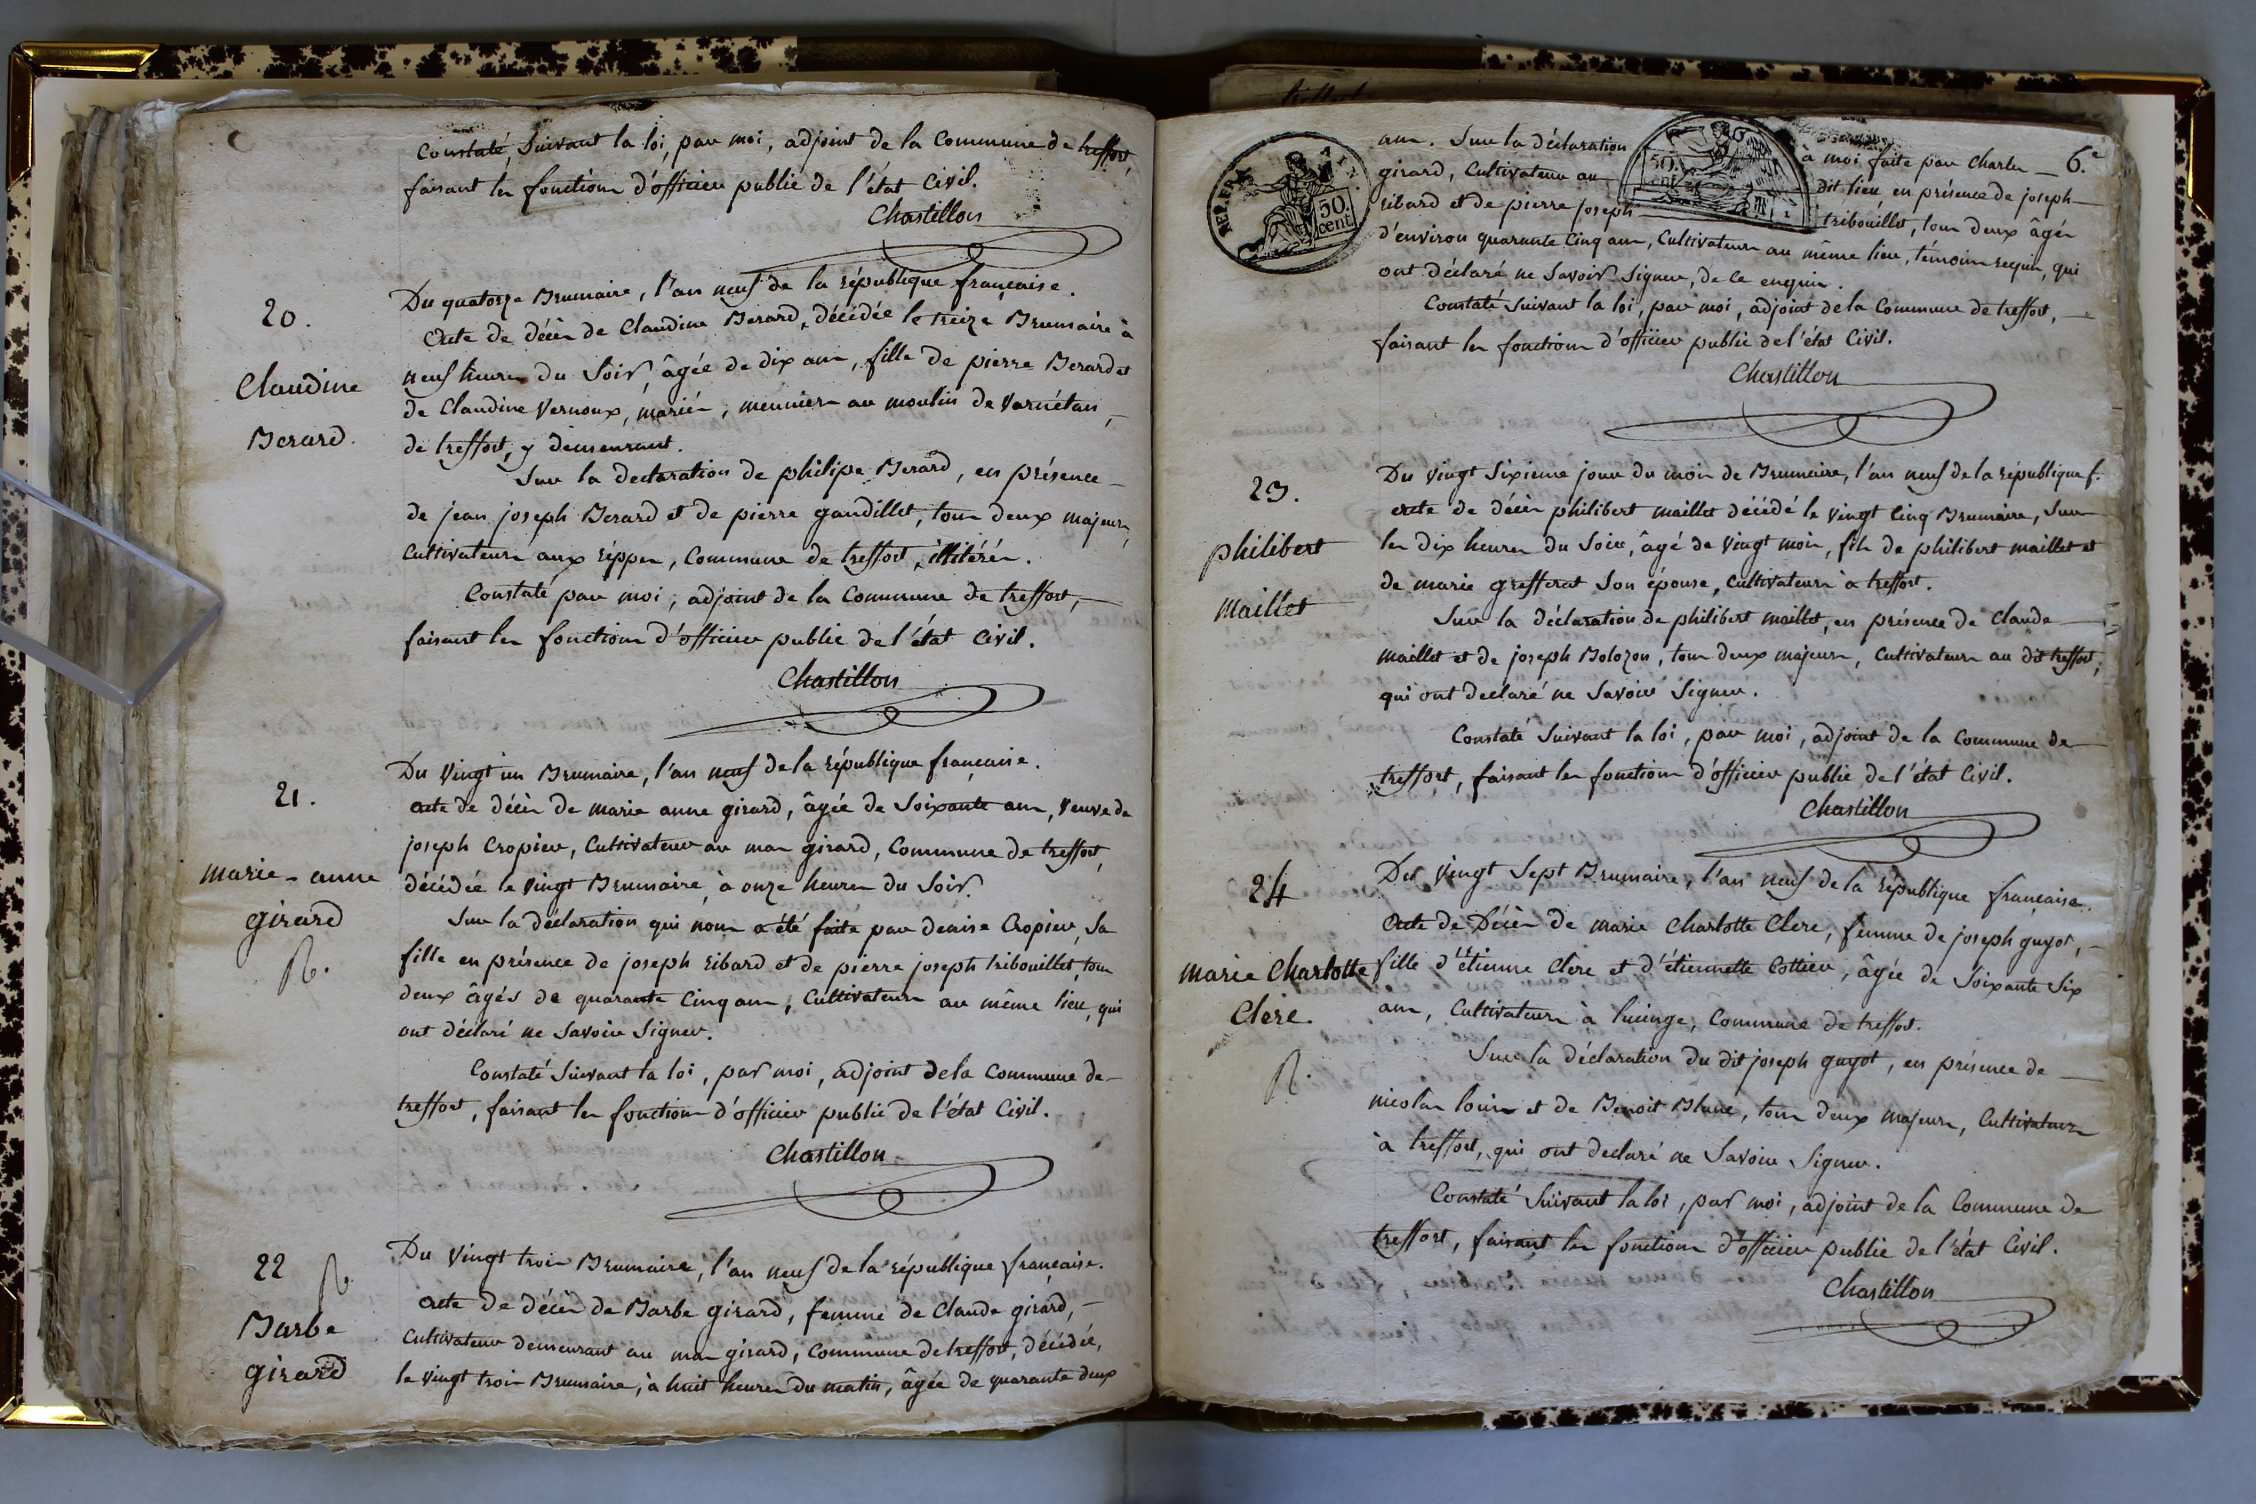 Constaté, suivant la loi, par moi, adjoint de la Commune de treffort,
faisant les fonctions d'officier public de l'état Civil.
Chastillon
20.
Claudine
Berard.
Du quatorze Brumaire, l'an neuf de la république française.
acte de décès de Claudine Berard, décédée le treize Brumaire à
neuf heures du Soir, âgée de dix ans, fille de pierre Berard et
de Claudine Vernoux, mariés, meuniers au moulin de
de treffort, y demeurant.
Sur la declaration de philipe Berard, en présence
de jean joseph Berard et de pierre gaudillet, tous deux majeurs,
Cultivateurs aux rippes, Commune de treffort, illitérés.
Constaté par moi, adjoint de la Commune de treffort,
faisant les fonctions d'officier public de l'état Civil.
Chastillon
21.
marie-anne
girard
Du Vingt un Brumaire, l'an neuf de la république française.
acte de décès de marie anne girard, âgée de Soixante ans, Veuve de
joseph Cropier, Cultivateur au mas girard, Commune de treffort,
décédée le Vingt Brumaire, à onze heures du Soir.
Sur la déclaration qui nous a été faite par denise Cropier, Sa
fille en présence de joseph ribard et de pierre joseph tribouillet, tous
deux âgés de quarante Cinq ans, Cultivateurs au même lieu, qui
ont déclaré ne Savoir Signer.
Constaté suivant la loi, par moi, adjoint de la Commune de
treffort, faisant les fonctions d'officier public de l'état Civil.
Chastillon
22
Barbe
girard
Du Vingt trois Brumaire, l'an neuf de la république française.
acte de décès de Barbe girard, femme de Claude girard,
Cultivateur demeurant au mas girard, Commune de treffort, décédée,
le vingt trois Brumaire, à huit heures du matin, âgée de quarante deux
6.e
REP. FRA.
50.
cent.
50.
ans. Sur la déclaration à moi faite par Charles
girard, Cultivateur au dit lieu, en présence de joseph
ribard et de pierre joseph tribouillet, tous deux âgés
d'environ quarante Cinq ans, Cultivateurs au même lieu, témoins requis, qui
ont déclaré ne Savoir Signer, de ce enquis.
Constaté suivant la loi, par moi, adjoint de la Commune de treffort,
faisant les fonctions d'officier public de l'état Civil.
Chastillon
23.
philibert
maillet
Du Vingt Sixieme jour du mois de Brumaire, l'an neuf de la république f.
acte de décès philibert maillet décédé le vingt Cinq Brumaire, sur
les dix heures du Soir, âgé de Vingt mois, fils de philibert maillet et
de marie grefferat son épouse, Cultivateurs à treffort.
Sur la déclaration de philibert maillet, en présence de Claude
maillet et de joseph Bolozon, tous deux majeurs, Cultivateurs au dit treffort,
qui ont declaré ne Savoir Signer.
Constaté suivant la loi, par moi, adjoint de la Commune de
treffort, faisant les fonctions d'officier public de l'état Civil.
Chastillon
24
marie Charlotte
Clere.
Du Vingt Sept Brumaire, l'an neuf de la république française.
Acte de Décès de marie Charlotte Clere, femme de joseph guyot,
fille d'étienne Clere et d'étiennette Cottier, âgée de Soixante Six
ans, Cultivateurs à lucinge, Commune de treffort.
Sur la déclaration du dit joseph guyot, en présence de
nicolas louis et de Benoit Blanc, tous deux majeurs, Cultivateurs
à treffort, qui ont declaré ne Savoir Signer.
Constaté suivant la loi, par moi, adjoint de la Commune de
treffort, faisant les fonctions d'officier public de l'état Civil.
Chastillon